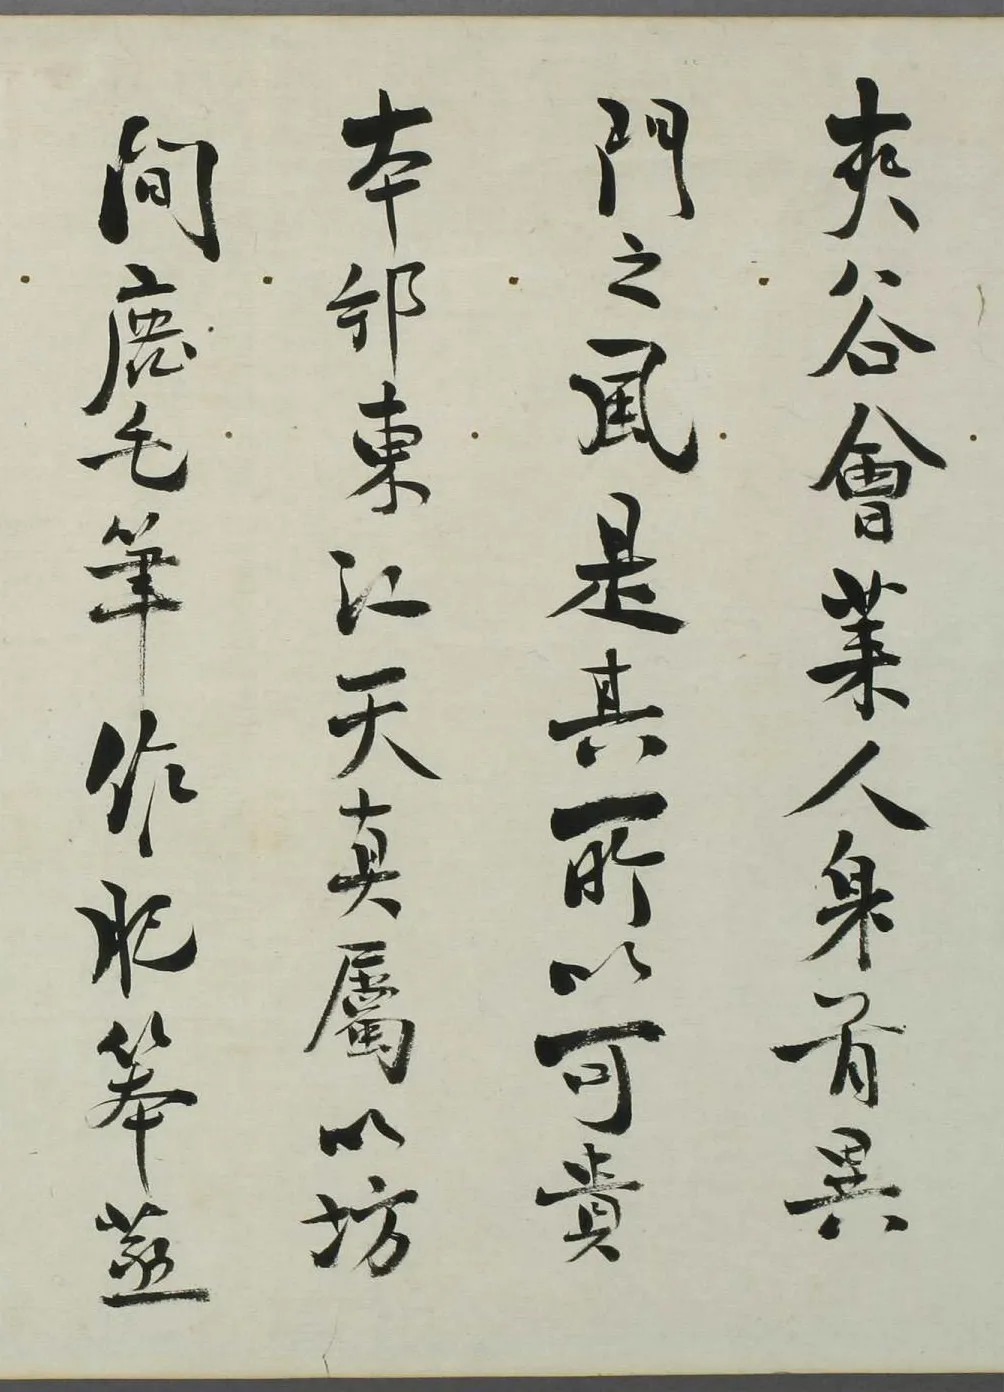 夾谷會萊人身首異
門之風是其所以可貴
本邦東江天真屬以坊
間鹿毛筆作肥笨蒸